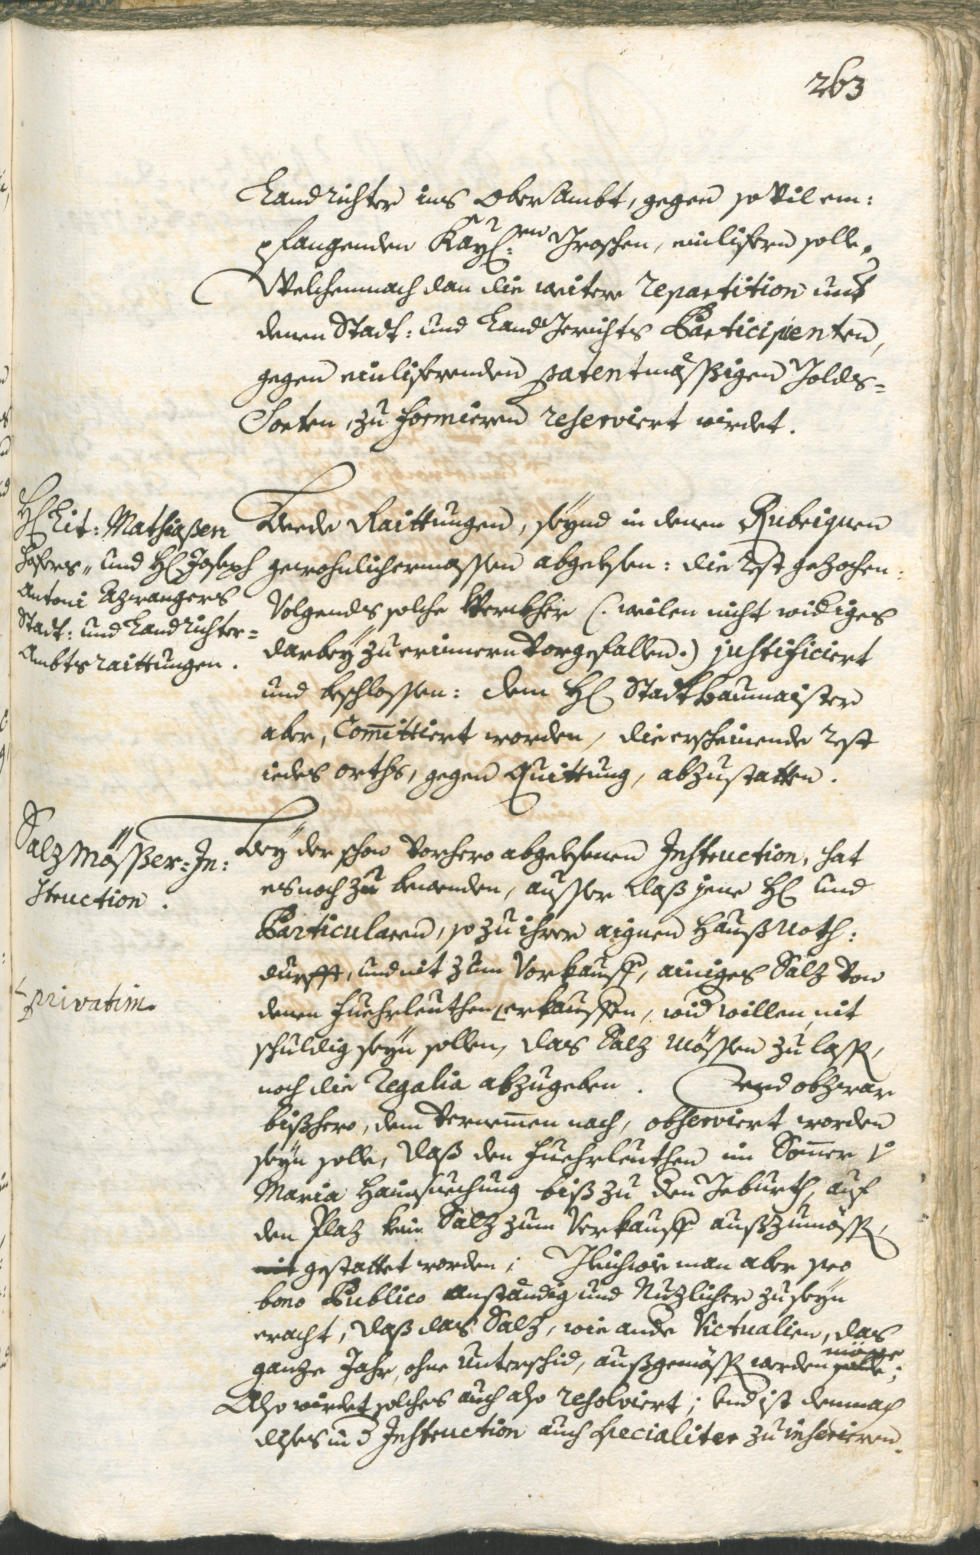 263
Landrichter ins OberAmbt, gegen so vil em:
pfangenden Kaÿs:en Groschen, einlifern solle,
Welchemnach dan die weitere repartition und
denen Statt: und LandGerichts Participienten,
gegen einlifrenden patentmässigen Golds=
Sorten, zu formieren reserviert wirdet.
Hℓ Lit: Mathiaßen
Hofers„ und Hℓ Joseph
Antoni Azwangers
Statt: und Landrichter=
Ambtsraittungen.
Beede Raittungen, seÿnd in denen Rubriquen
gewohnlichermassen abgelesen: die rest gezochen:
Volgends solche Werckher (: weilen nicht widriges
darbeÿ zu erinnern vorgefallen:) justificiert
und beschlossen: dem Hℓ Stattbaumaister
aber, Committiert worden, die erscheinende rest
iedes orths, gegen Quittung, abzustatten.
Salzmösser=In:
struction.
Beÿ der schon vorhero abgelesenen Instruction, hat
es noch zu bewenden, ausser daß jene Hℓ und
Particularn, so zu ihrer aignen Hauß Noth:
durfft, und nit zum Verkauff, ainiges Salz von
denen Fuehrleuthen erkauffen, wid willen nit
privatim
schuldig seÿn sollen, das Salz mössen zu lassen,
noch die Regalia abzugeben. Und obzwar
bißhero, dem Vernemmen nach, observiert worden
seÿn solle, daß den Fuehrleuthen im Sommer v.
Maria Haimsuechung biß zu den Geburth, auf
den Plaz kein Salz zum Verkauff außzumössen,
nit gestattet worden; Gleichwie man aber pro
bono Publico anständig und Nuzlicher zu seÿn
eracht, daß das Salz, wie ande Victualien, das
ganze Jahr, ohne unterschid, außgemössen werden solle möge;
Also wirdet solches auch also resolviert; und ist demnach
dises in d Instruction auch specialiter zu inserieren.